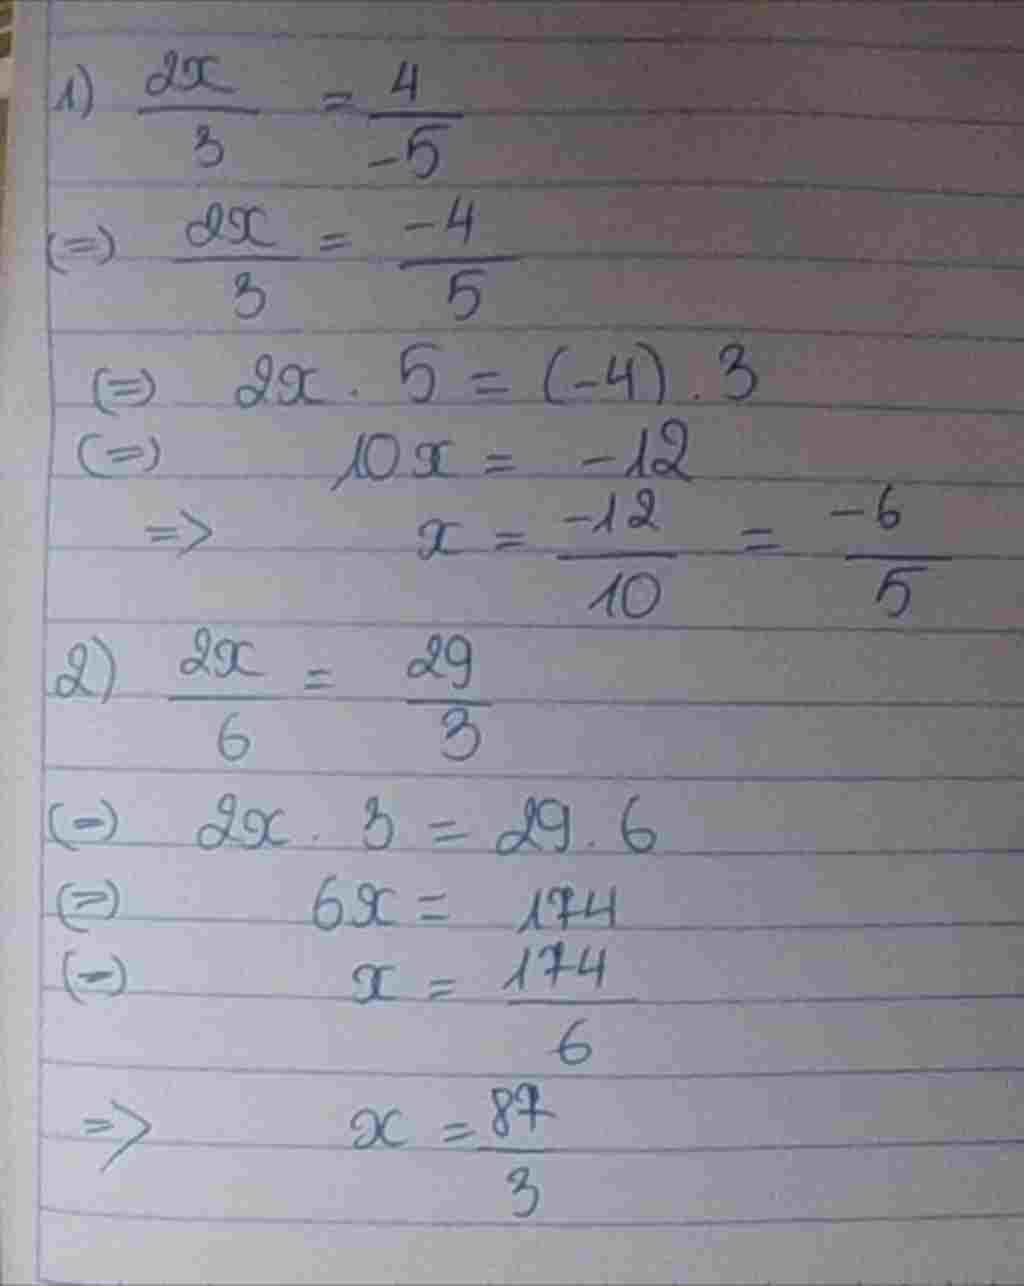 1) 2x/3 = 4/-5
(=) 2x/3 = -4/5
(=) 2x . 5 = (-4) . 3
(=) 10x = -12
=> x = -12/10 = -6/5
2) 2x/6 = 29/3
(=) 2x . 3 = 29 . 6
(=) 6x = 174
(=) x = 174/6
=> x = 87/3